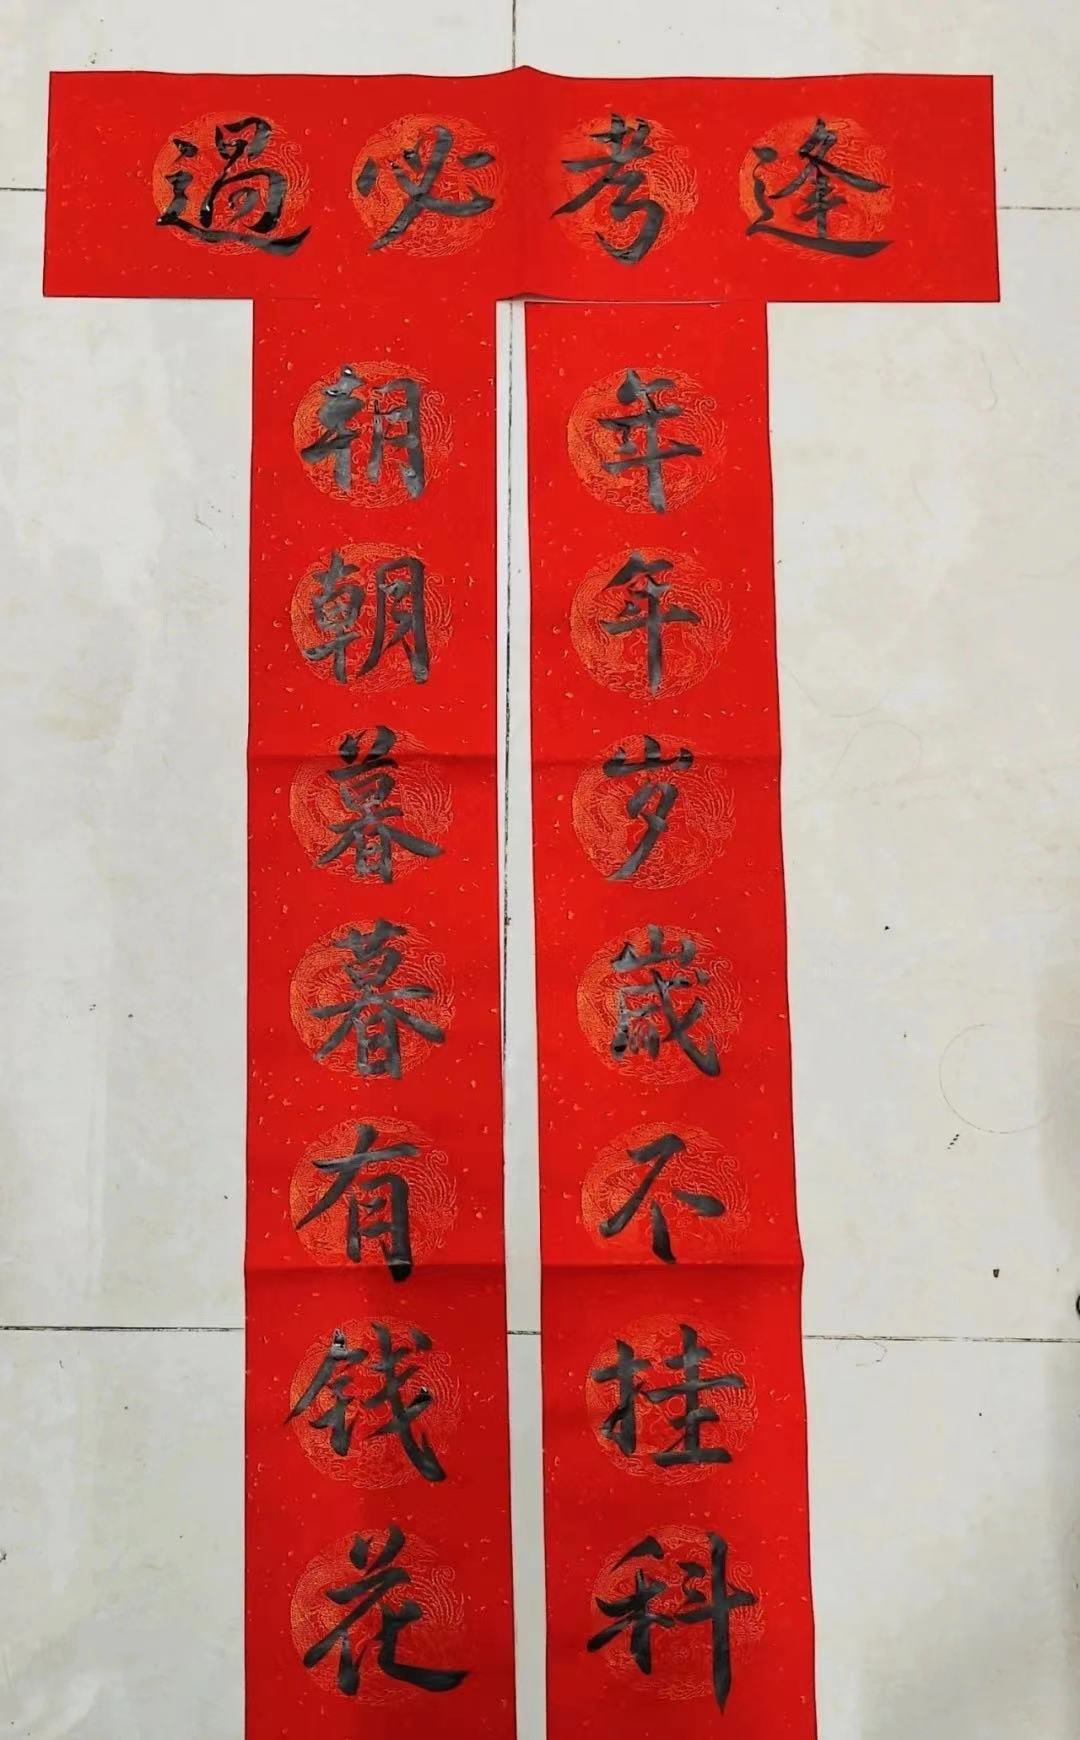 逢考必過
年年岁歲不挂科
朝朝暮暮有钱花